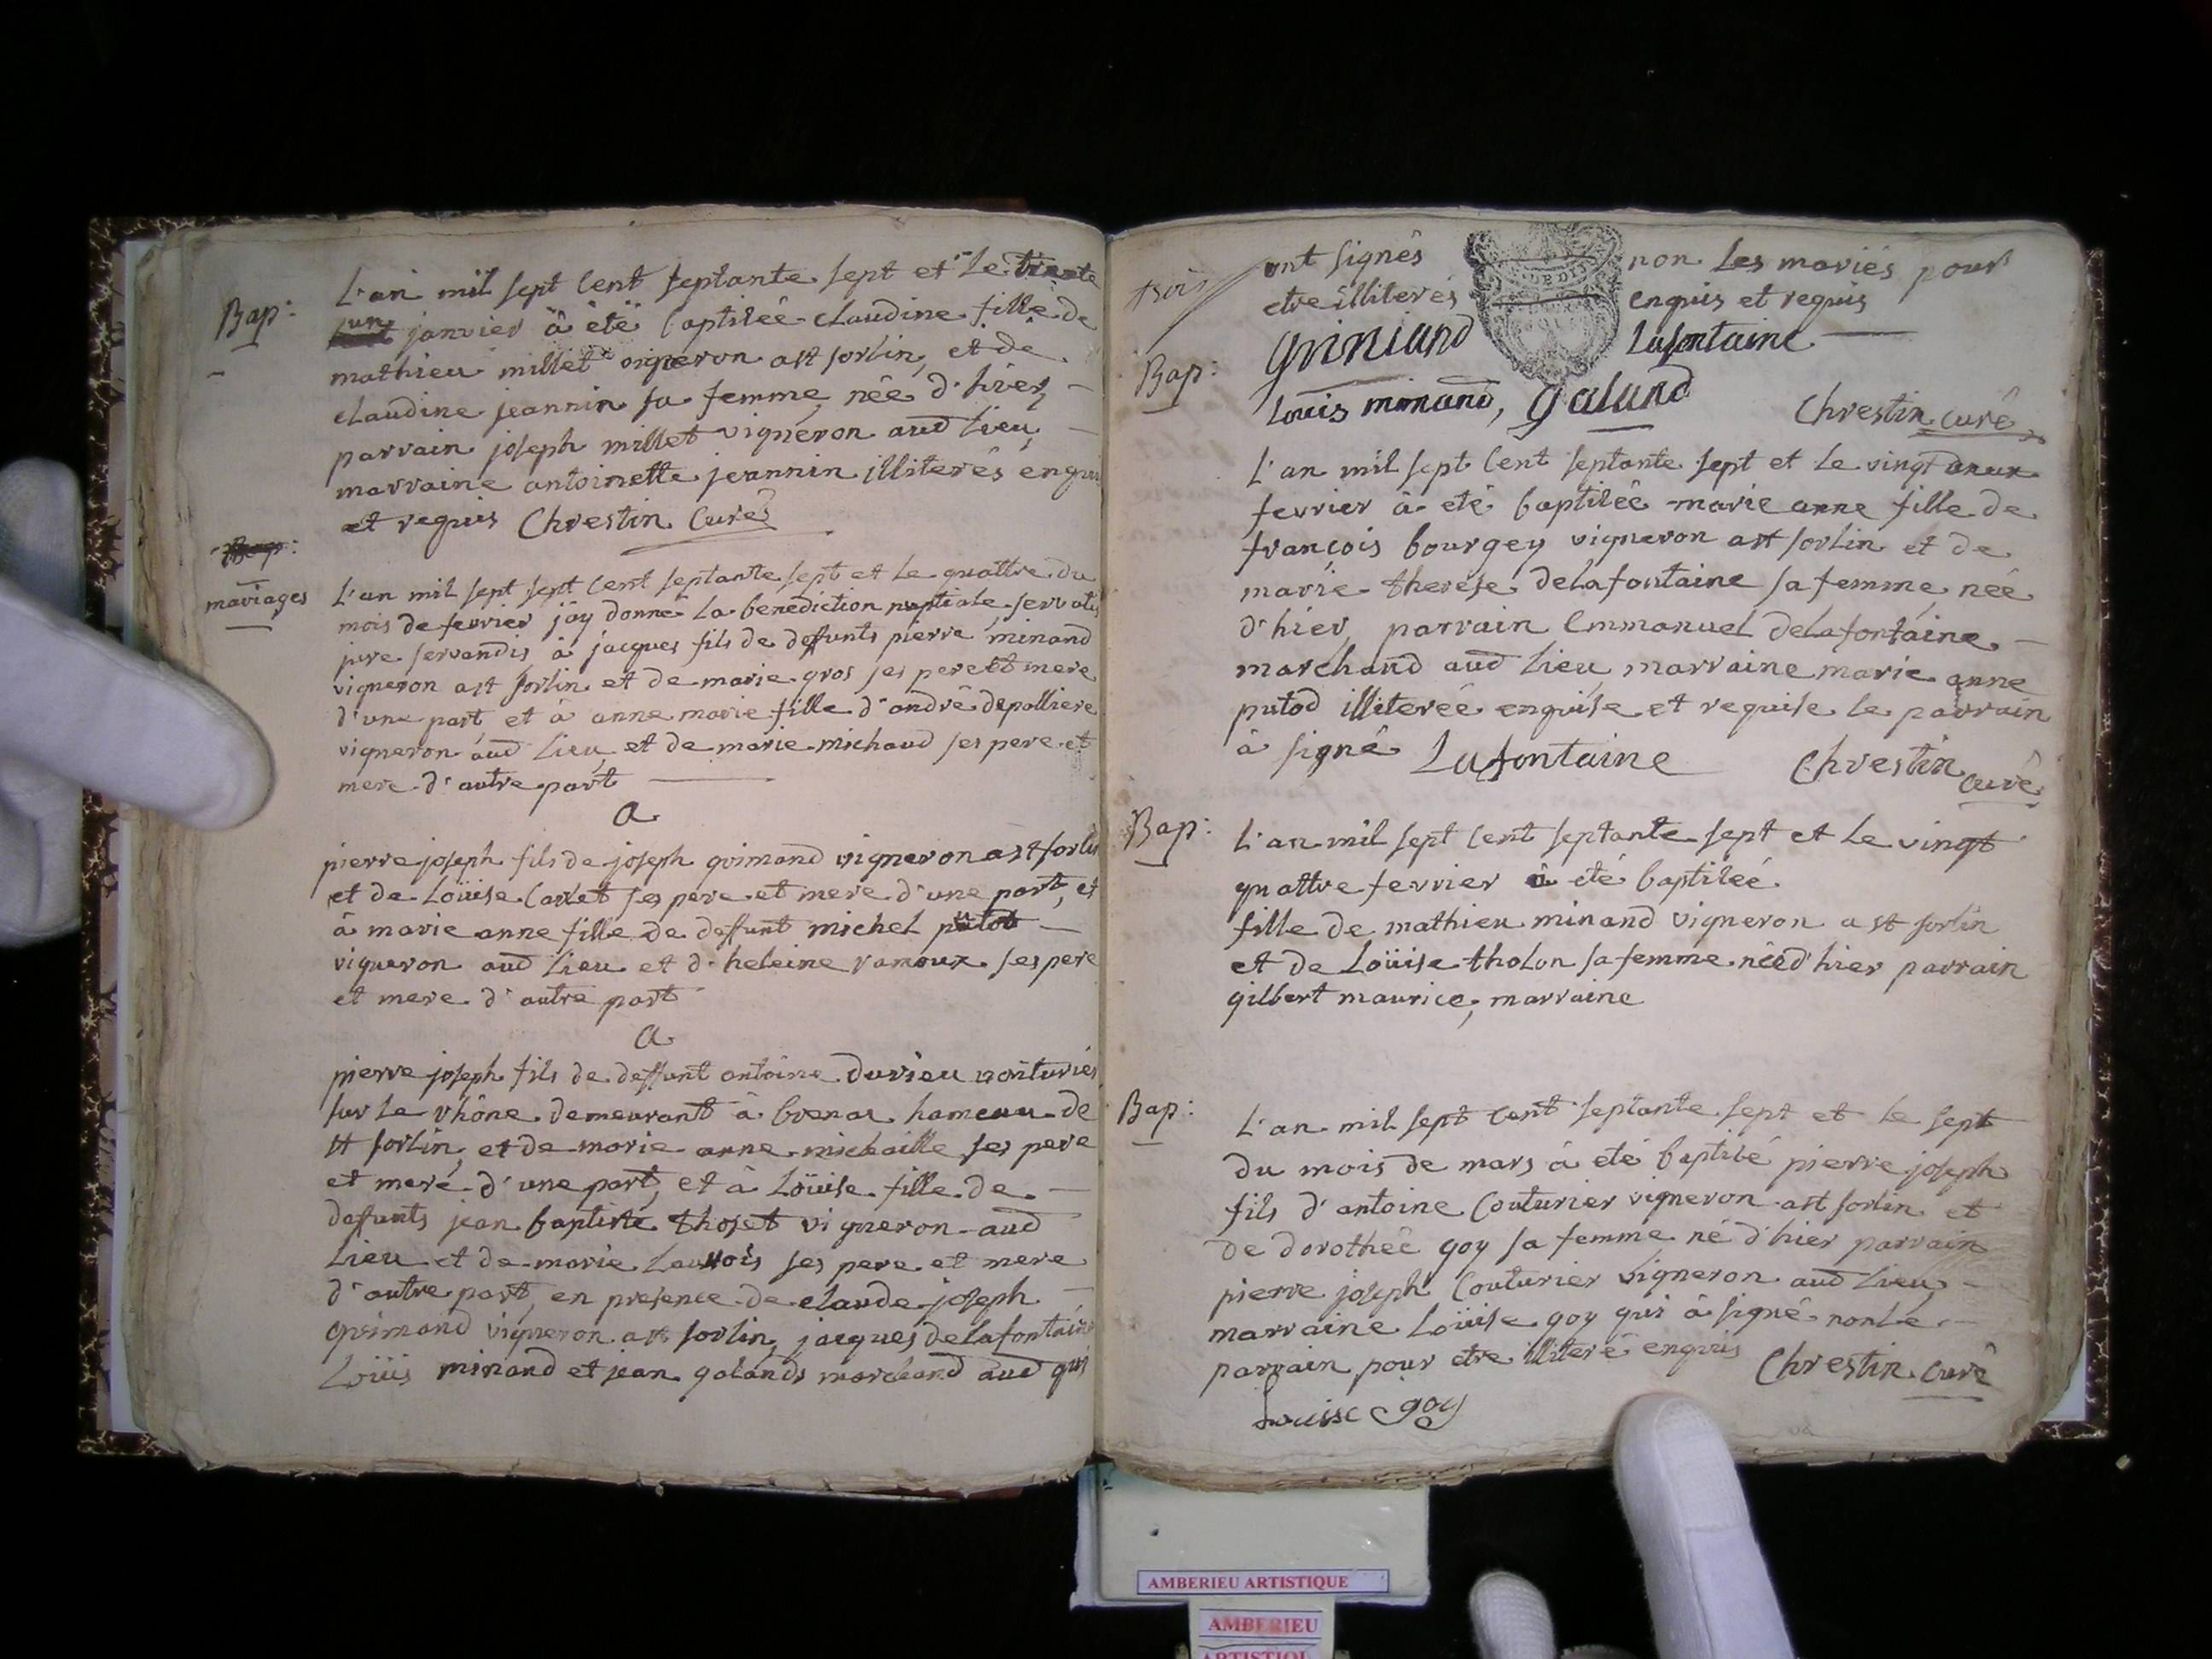 Bap:
L'an mil sept cent septante sept et le trente
un janvier à été baptisée claudine fille de
mathieu millet vigneron a st sorlin, et de
claudine jeannin sa femme, née d'hier,
parrain joseph millet vigneron aud lieu,
marraine antoinette jeannin illiterés enquis
et requis Chrestin curé
mariages
L'an mil sept sept cent septante sept et le quattre du
mois de fevrier jäy donné la benediction nuptiale servatis
jure servandis à jacques fils de deffunts pierre minand
vigneron a st sorlin et de marie gros ses pere et mere
d'une part, et à anne marie fille d'andré depolliere
vigneron aud lieu et de marie michaud ses pere et
mere d'autre part
a
pierre joseph fils de joseph grimand vigneron a st sorlin
et de Loüise Carlet ses pere et mere d'une part, et
à marie anne fille de deffunt michel putot
vigneron aud lieu et d'heleine ramoux ses pere
et mere d'autre part
a
pierre joseph fils de deffunt antoine durieu voiturier
sur le rhône demeurant à brenas hameau de
st sorlin, et de marie anne michaille ses pere
et mere d'une part, et à Loüise fille de
deffunts jean baptiste thoset vigneron aud
lieu et de marie ses pere et mere
d'autre part, en presence de claude joseph
grimand vigneron a st sorlin, jacques delafontaine
Loüis minand et jean galands marchand aud qui
trois ont signés non les mariés pour
etre illiterés enquis et requis
Griniand Lafontaine
Louis minand, galand Chrestin curé
Bap:
L'an mil sept cent septante sept et le vingt deux
fevrier à eté baptisée marie anne fille de
françois bourgey vigneron a st sorlin et de
marie therese delafontaine sa femme, née
d'hier, parrain Emmanuel delafontaine
marchand aud lieu marraine marie anne
putod illiterée enquise et requise le parrain
à signé Lafontaine Chrestin curé
Bap:
L'an mil sept cent septante sept et le vingt
quattre fevrier à eté baptisée
fille de mathieu minand vigneron a st sorlin
et de Loüise tholon sa femme née d'hier parrain
gilbert maurice, marraine
Bap:
L'an mil sept cent septante sept et le sept
du mois de mars à eté baptisé pierre joseph
fils d'antoine Couturier vigneron a st sorlin et
de dorothée goy sa femme né d'hier parrain
pierre joseph Couturier vigneron aud lieu,
marraine Loüise goy qui à signé non le
parrain pour etre illiteré enquis Chrestin curé
Louise goy
AMBERIEU ARTISTIQUE
AMBERIEU
ARTISTIQU